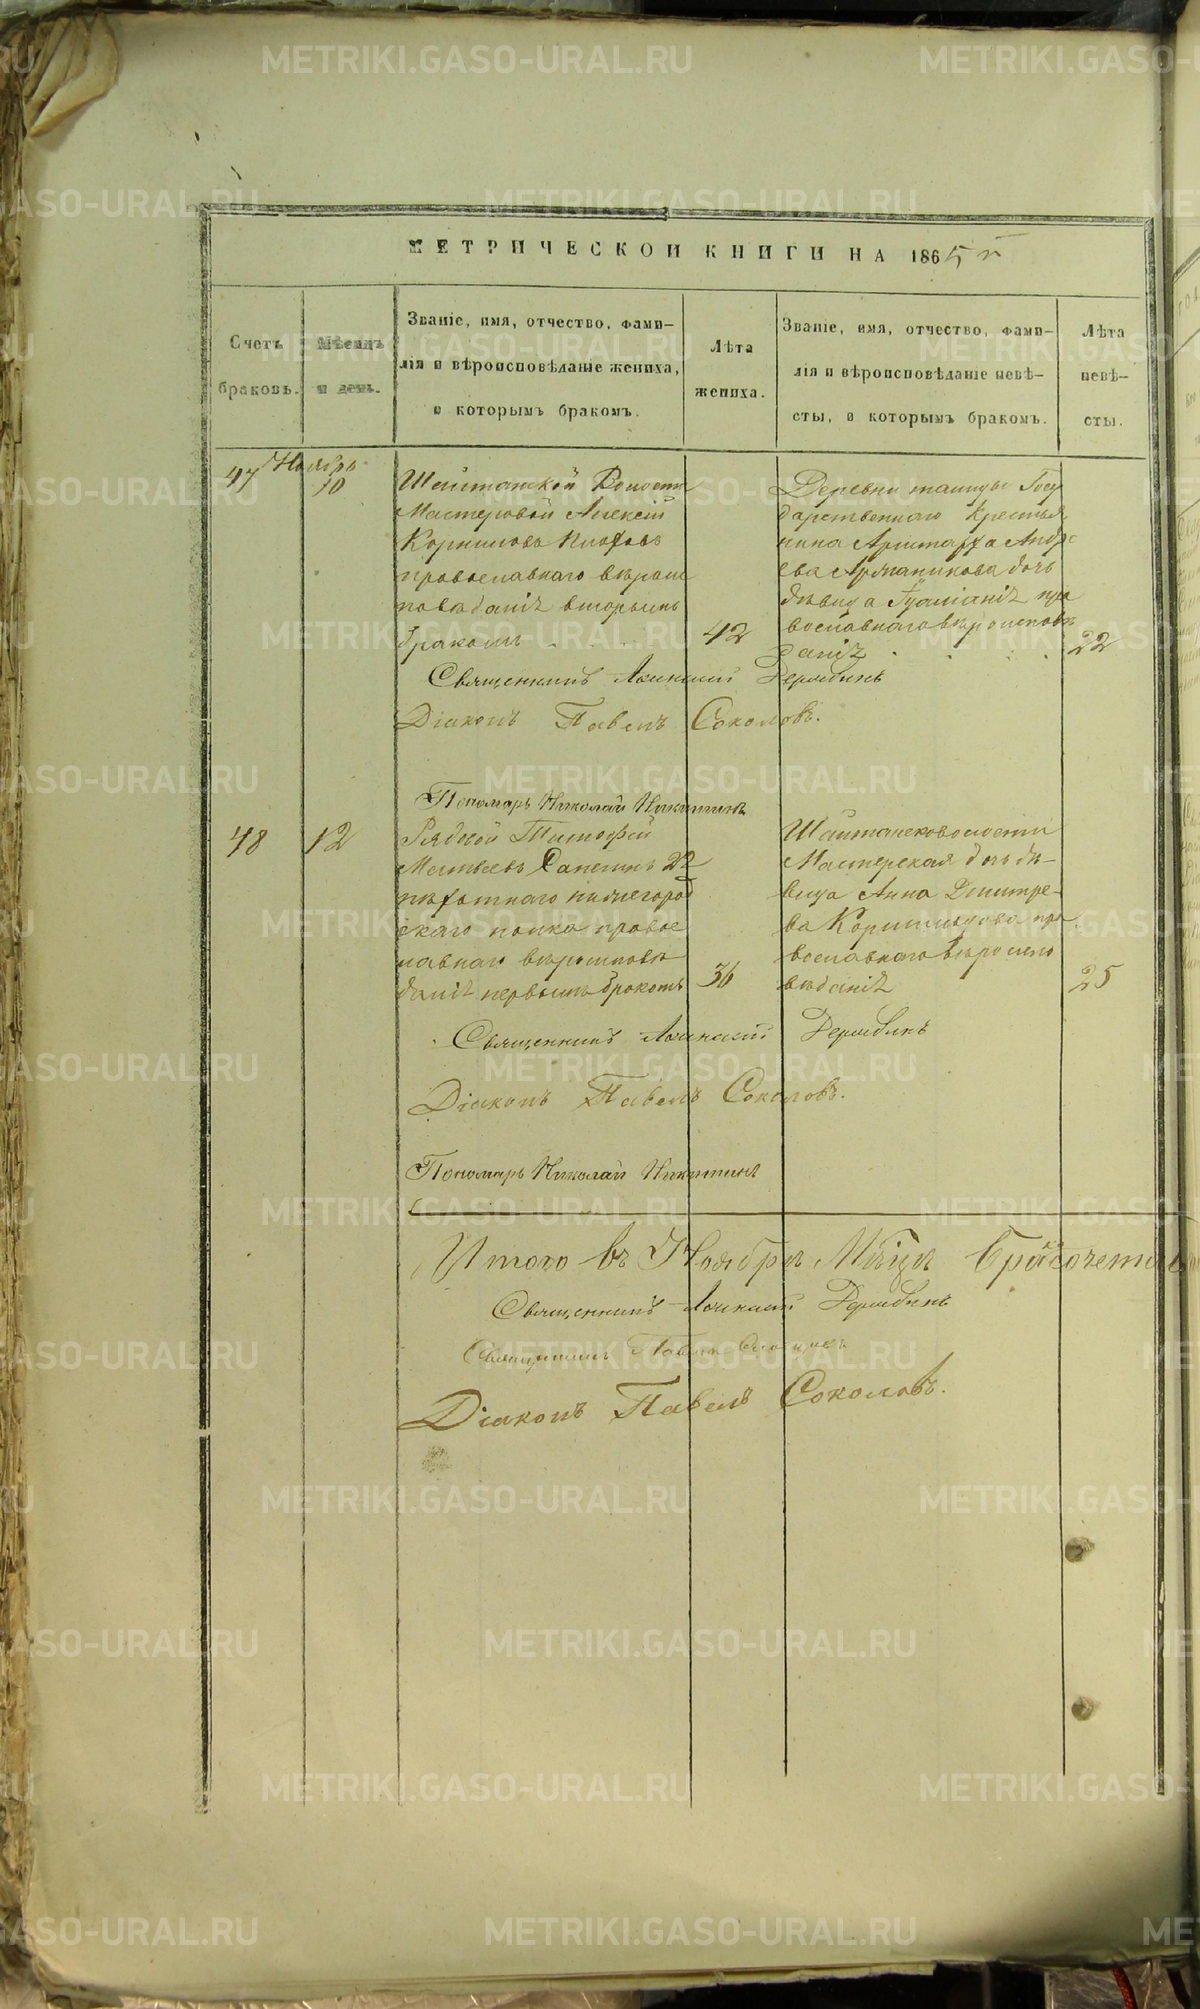 МЕТРИЧЕСКОЙ КНИГИ НА 1865 й
Счетъ браковъ.
Мѣсяцъ и день.
Званіе, имя, отчество, фами-
лія и вѣроисповѣданіе жениха,
и которымъ бракомъ.
Лѣта жениха.
Званіе, имя, отчество, фами-
лія и вѣроисповѣданіе невѣ-
сты, и которымъ бракомъ.
Лѣта невѣ-
сты.
47
Ноябрь
10
Шайтанской Волости
Мастеровой Алексій
Корниловъ
православнаго вѣроис
повѣданія вторымъ
бракомъ
42
Деревни Госу
дарственнаго Крестья
нина Андре
ева дочь
дѣвица пра
вославнаго вѣроисповѣ
данія
22
Священникъ Дерябинъ
Діаконъ Павелъ Соколовъ.
Пономарь Николай Никитинъ
48
12
Рядовой Тимофей
Матвеевъ Сапегинъ 22
пѣхотнаго нижегород
скаго полка правос
лавнаго вѣроисповѣ
данія первымъ бракомъ
36
Шайтанской волости
Мастерская дочь дѣ-
вица Анна Дмитре-
ва пра
вославнаго вѣроиспо
вѣданія
25
Священникъ Дерябинъ
Діаконъ Павелъ Соколовъ.
Пономарь Николай Никитинъ
Итого въ Ноябрѣ Мѣсяцѣ
Священникъ Дерябинъ
Священникъ
Діаконъ Павелъ Соколовъ.
METRIKI.GASO-URAL.RU